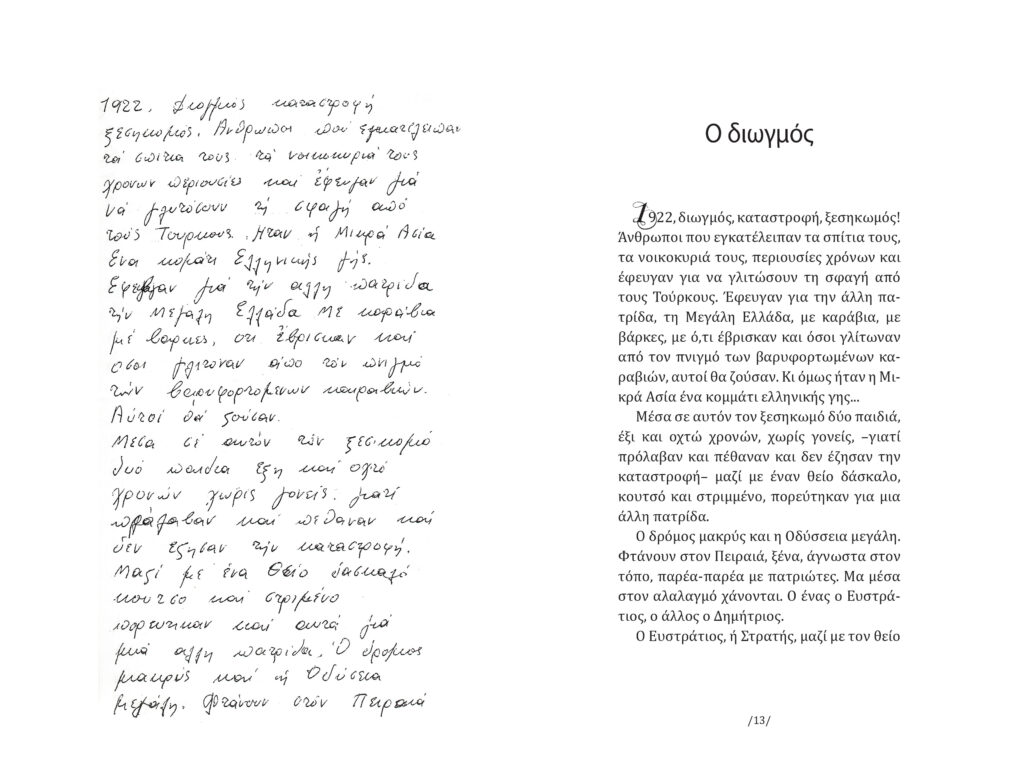 1922. Διογμος καταστροφή
ξεσηκομος. Ανθρωποι πού εγκατέλειπαν
τά σπιτια τους τά νοικοκυριά τους
χρονων περιουσίες καί έφευγαν γιά
νά γλυτόσουν τή σφαγή από
τούς Τουρκους. Ηταν ή Μικρά Ασία
ένα κομάτι Ελληνικής γής.
Εφευγαν γιά τήν αλλη πατρίδα
τήν Μεγάλη Ελλάδα με καράβια
μέ βαρκες, οτι έβρισκαν καί
οσοι γλιτοναν άπο τόν πνιγμό
τών βαρυφορτομενων καραβιών.
Αύτοί θά ζούσαν.
Μεσα σέ αυτόν τόν ξεσικομό
δυό παιδια εξη καί οχτό
χρονών χωρίς γονείς. γιατί
προλαβαν καί πεθαναν καί
δεν εζησαν τήν καταστροφή.
Μαζί με ένα θείο δασκαλό
κουτσο καί στριμένο
πορευτηκαν καί αυτά γιά
μιά αλλη πατρίδα. Ό δρομος
μακρύς καί ή Οδύσεια
μεγάλη. Φτάνουν στόν Πειραιά
Ο διωγμός
1922, διωγμός, καταστροφή, ξεσηκωμός!
Άνθρωποι που εγκατέλειπαν τα σπίτια τους,
τα νοικοκυριά τους, περιουσίες χρόνων και
έφευγαν για να γλιτώσουν τη σφαγή από
τους Τούρκους. Έφευγαν για την άλλη πα-
τρίδα, τη Μεγάλη Ελλάδα, με καράβια, με
βάρκες, με ό,τι έβρισκαν και όσοι γλίτωναν
από τον πνιγμό των βαρυφορτωμένων κα-
ραβιών, αυτοί θα ζούσαν. Κι όμως ήταν η Μι-
κρά Ασία ένα κομμάτι ελληνικής γης...
Μέσα σε αυτόν τον ξεσηκωμό δύο παιδιά,
έξι και οχτώ χρονών, χωρίς γονείς, –γιατί
πρόλαβαν και πέθαναν και δεν έζησαν την
καταστροφή– μαζί με έναν θείο δάσκαλο,
κουτσό και στριμμένο, πορεύτηκαν για μια
άλλη πατρίδα.
Ο δρόμος μακρύς και η Οδύσσεια μεγάλη.
Φτάνουν στον Πειραιά, ξένα, άγνωστα στον
τόπο, παρέα-παρέα με πατριώτες. Μα μέσα
στον αλαλαγμό χάνονται. Ο ένας ο Ευστρά-
τιος, ο άλλος ο Δημήτριος.
Ο Ευστράτιος, ή Στρατής, μαζί με τον θείο
/13/